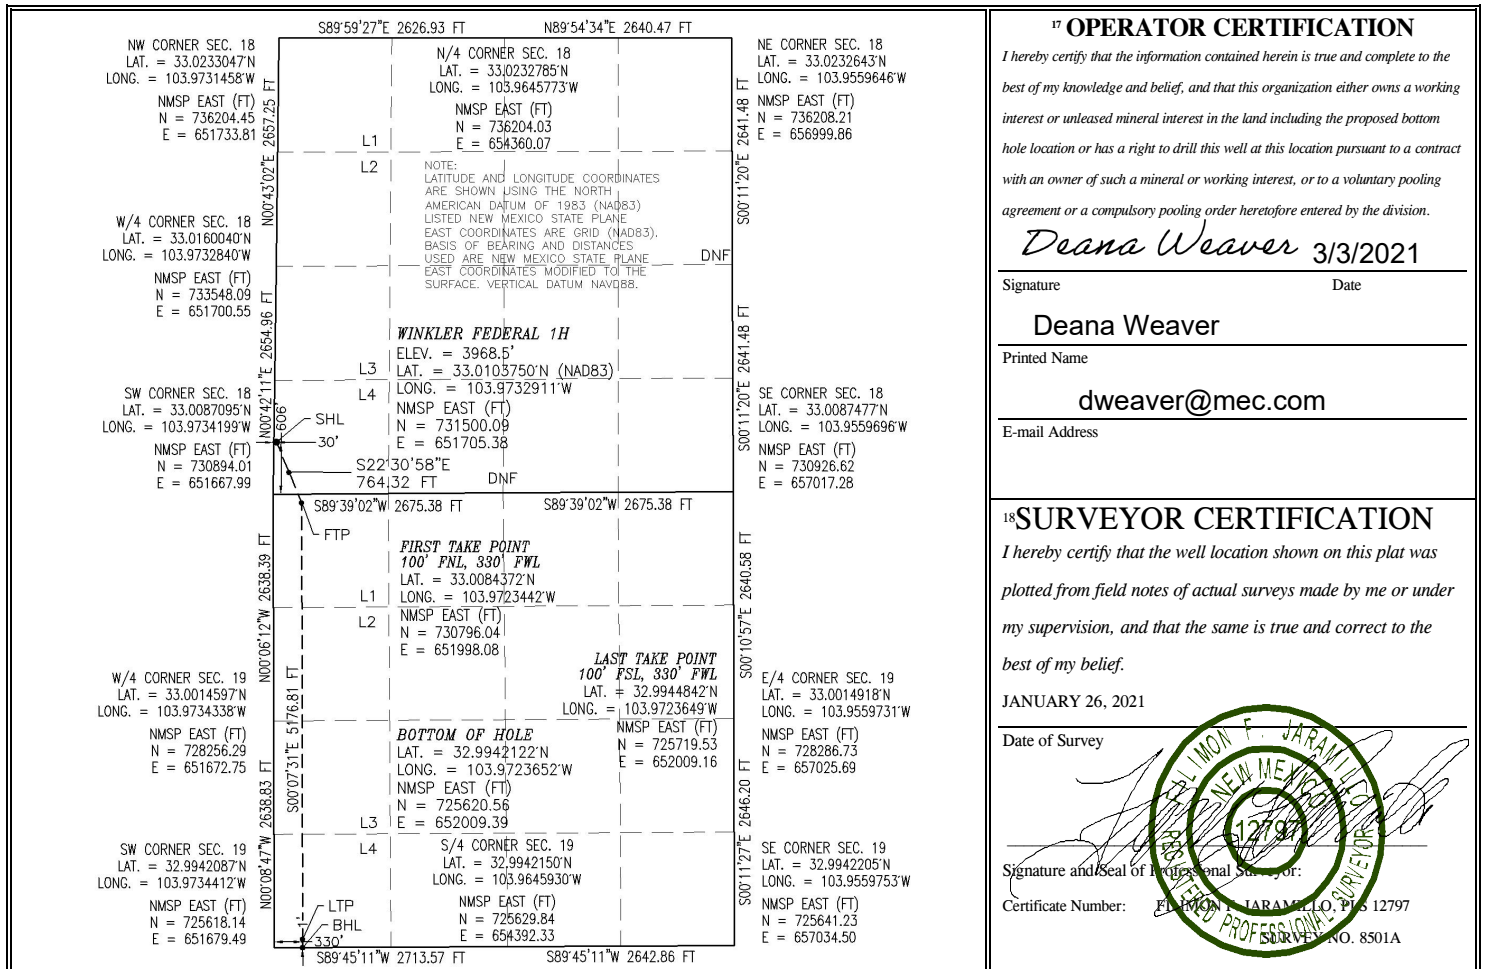 S89°59'27"E 2626.93 FT
N89°54'34"E 2640.47 FT
NW CORNER SEC. 18
LAT. = 33.0233047°N
LONG. = 103.9731458°W
NMSP EAST (FT)
N = 736204.45
E = 651733.81
N/4 CORNER SEC. 18
LAT. = 33.0232785°N
LONG. = 103.9645773°W
NMSP EAST (FT)
N = 736204.03
E = 654360.07
NE CORNER SEC. 18
LAT. = 33.0232643°N
LONG. = 103.9559646°W
NMSP EAST (FT)
N = 736208.21
E = 656999.86
N00°43'02"E 2657.25 FT
S00°11'20"E 2641.48 FT
L1
L2
NOTE:
LATITUDE AND LONGITUDE COORDINATES
ARE SHOWN USING THE NORTH
AMERICAN DATUM OF 1983 (NAD83)
LISTED NEW MEXICO STATE PLANE
EAST COORDINATES ARE GRID (NAD83).
BASIS OF BEARING AND DISTANCES
USED ARE NEW MEXICO STATE PLANE
EAST COORDINATES MODIFIED TO THE
SURFACE. VERTICAL DATUM NAVD88.
DNF
W/4 CORNER SEC. 18
LAT. = 33.0160040°N
LONG. = 103.9732840°W
NMSP EAST (FT)
N = 733548.09
E = 651700.55
N00°42'11"E 2654.96 FT
S00°11'20"E 2641.48 FT
WINKLER FEDERAL 1H
ELEV. = 3968.5'
LAT. = 33.0103750°N (NAD83)
LONG. = 103.9732911°W
NMSP EAST (FT)
N = 731500.09
E = 651705.38
L3
L4
SW CORNER SEC. 18
LAT. = 33.0087095°N
LONG. = 103.9734199°W
NMSP EAST (FT)
N = 730894.01
E = 651667.99
606'
SHL
30'
S22°30'58"E
764.32 FT
DNF
SE CORNER SEC. 18
LAT. = 33.0087477°N
LONG. = 103.9559696°W
NMSP EAST (FT)
N = 730926.62
E = 657017.28
S89°39'02"W 2675.38 FT
S89°39'02"W 2675.38 FT
FTP
FIRST TAKE POINT
100' FNL, 330' FWL
LAT. = 33.0084372°N
LONG. = 103.9723442°W
NMSP EAST (FT)
N = 730796.04
E = 651998.08
N00°06'12"W 2638.39 FT
S00°10'57"E 2640.58 FT
L1
L2
LAST TAKE POINT
100' FSL, 330' FWL
LAT. = 32.9944842°N
LONG. = 103.9723649°W
NMSP EAST (FT)
N = 725719.53
E = 652009.16
W/4 CORNER SEC. 19
LAT. = 33.0014597°N
LONG. = 103.9734338°W
NMSP EAST (FT)
N = 728256.29
E = 651672.75
E/4 CORNER SEC. 19
LAT. = 33.0014918°N
LONG. = 103.9559731°W
NMSP EAST (FT)
N = 728286.73
E = 657025.69
S00°07'31"E 5176.81 FT
BOTTOM OF HOLE
LAT. = 32.9942122°N
LONG. = 103.9723652°W
NMSP EAST (FT)
N = 725620.56
E = 652009.39
N00°08'47"W 2638.83 FT
S00°11'27"E 2646.20 FT
L3
L4
SW CORNER SEC. 19
LAT. = 32.9942087°N
LONG. = 103.9734412°W
NMSP EAST (FT)
N = 725618.14
E = 651679.49
S/4 CORNER SEC. 19
LAT. = 32.9942150°N
LONG. = 103.9645930°W
NMSP EAST (FT)
N = 725629.84
E = 654392.33
SE CORNER SEC. 19
LAT. = 32.9942205°N
LONG. = 103.9559753°W
NMSP EAST (FT)
N = 725641.23
E = 657034.50
LTP
BHL
330'
S89°45'11"W 2713.57 FT
S89°45'11"W 2642.86 FT
17 OPERATOR CERTIFICATION
I hereby certify that the information contained herein is true and complete to the
best of my knowledge and belief, and that this organization either owns a working
interest or unleased mineral interest in the land including the proposed bottom
hole location or has a right to drill this well at this location pursuant to a contract
with an owner of such a mineral or working interest, or to a voluntary pooling
agreement or a compulsory pooling order heretofore entered by the division.
Deana Weaver 3/3/2021
Signature Date
Deana Weaver
Printed Name
dweaver@mec.com
E-mail Address
18 SURVEYOR CERTIFICATION
I hereby certify that the well location shown on this plat was
plotted from field notes of actual surveys made by me or under
my supervision, and that the same is true and correct to the
best of my belief.
JANUARY 26, 2021
Date of Survey
FILIMON F. JARAMILLO
NEW MEXICO
12797
REGISTERED PROFESSIONAL SURVEYOR
Signature and Seal of Professional Surveyor:
Certificate Number: FILIMON F. JARAMILLO, PLS 12797
SURVEY NO. 8501A